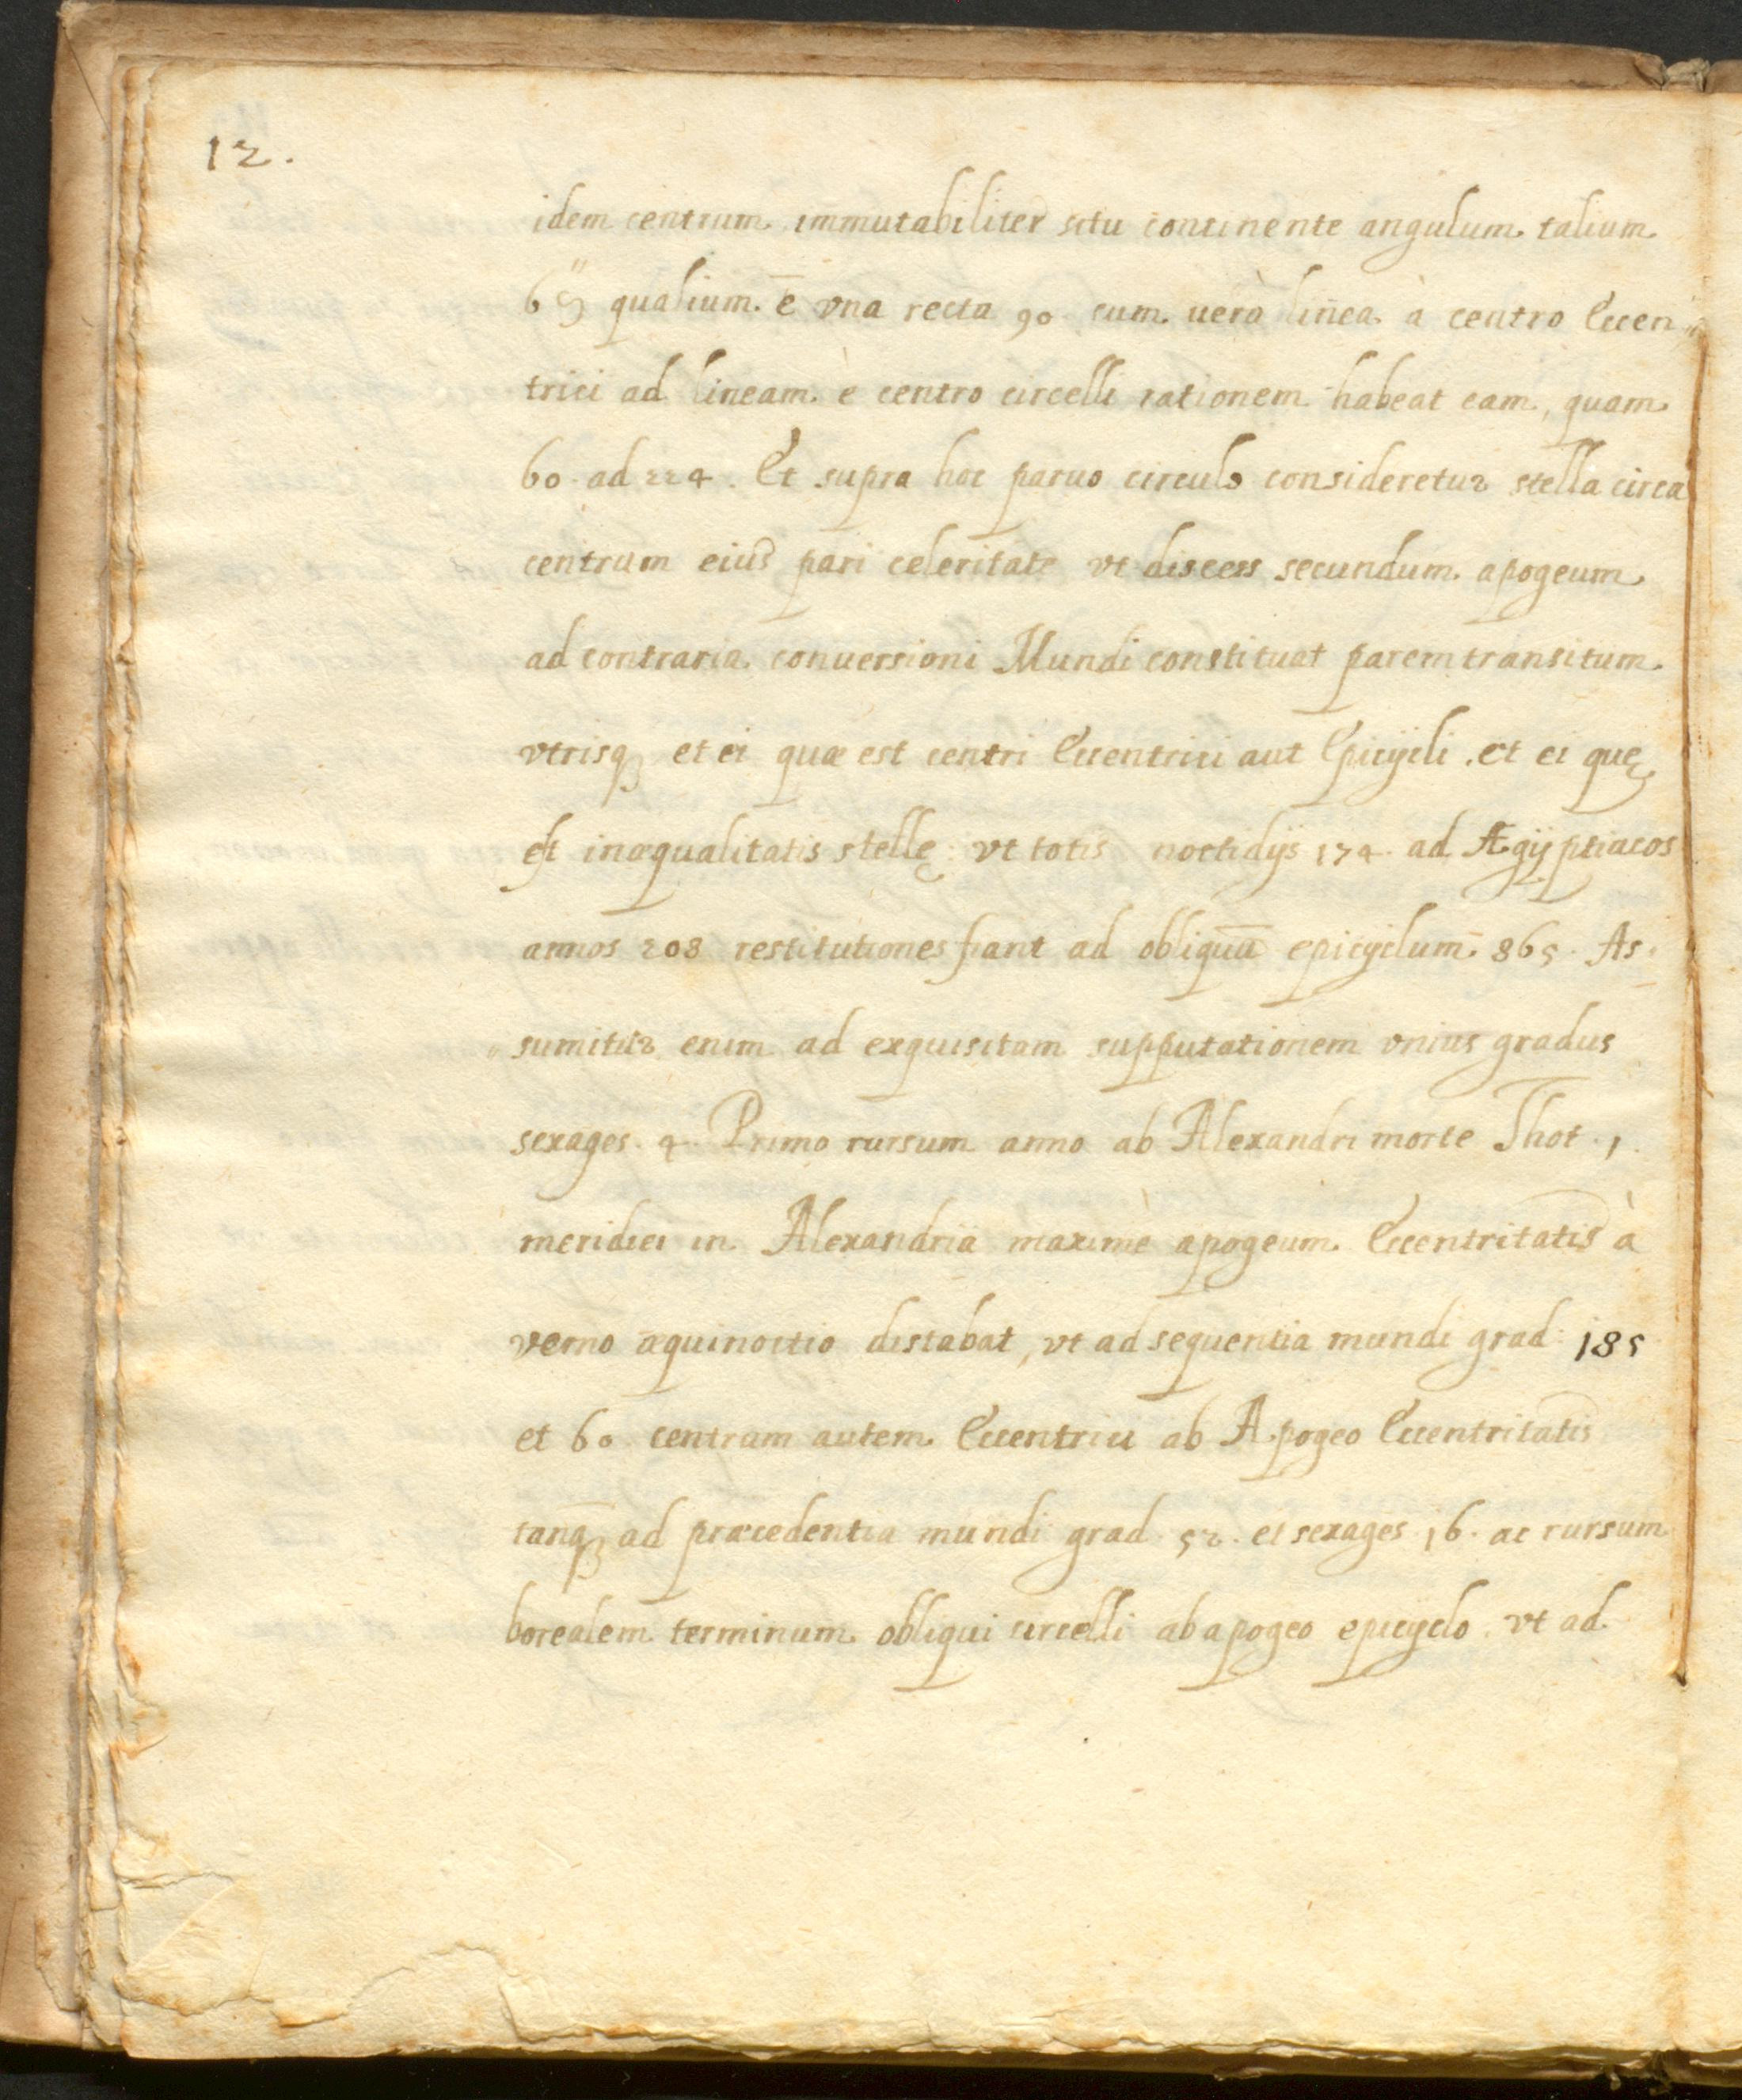 12.
idem centrum immutabiliter situ continente angulum talium
6 qualium ē vna recta 90 cum uerò linea à centro Eccen
trici ad lineam è centro circelli rationem habeat eam, quam
60 ad 224. Et supra hoc paruo circulo consideretur stella circa
centrum eius pari celeritate vt discess secundum apogeum
ad contraria conuersioni Mundi constituat parem transitum
vtrisq et ei quæ est centri Eccentrici aut Epicycli. et ei quę
est inæqualitatis stellę: vt totis noctidijs 174. ad Ægyptiacos
annos 208 restitutiones fiant ad obliquū epicyclum. 865. As-
sumitur enim ad exquisitam supputationem vnius gradus
sexages. 4. Primo rursum anno ab Alexandri morte Thot. 1.
meridiei in Alexandria maximè apogeum Eccentritatis à
verno æquinoctio distabat, vt ad sequentia mundi grad: 185
et 60 centram autem Eccentrici ab Apogeo Eccentritatis
tanq ad præcedentia mundi grad. 52. et sexages. 16. ac rursum
borealem terminum obliqui circelli ab apogeo epicyclo. vt ad